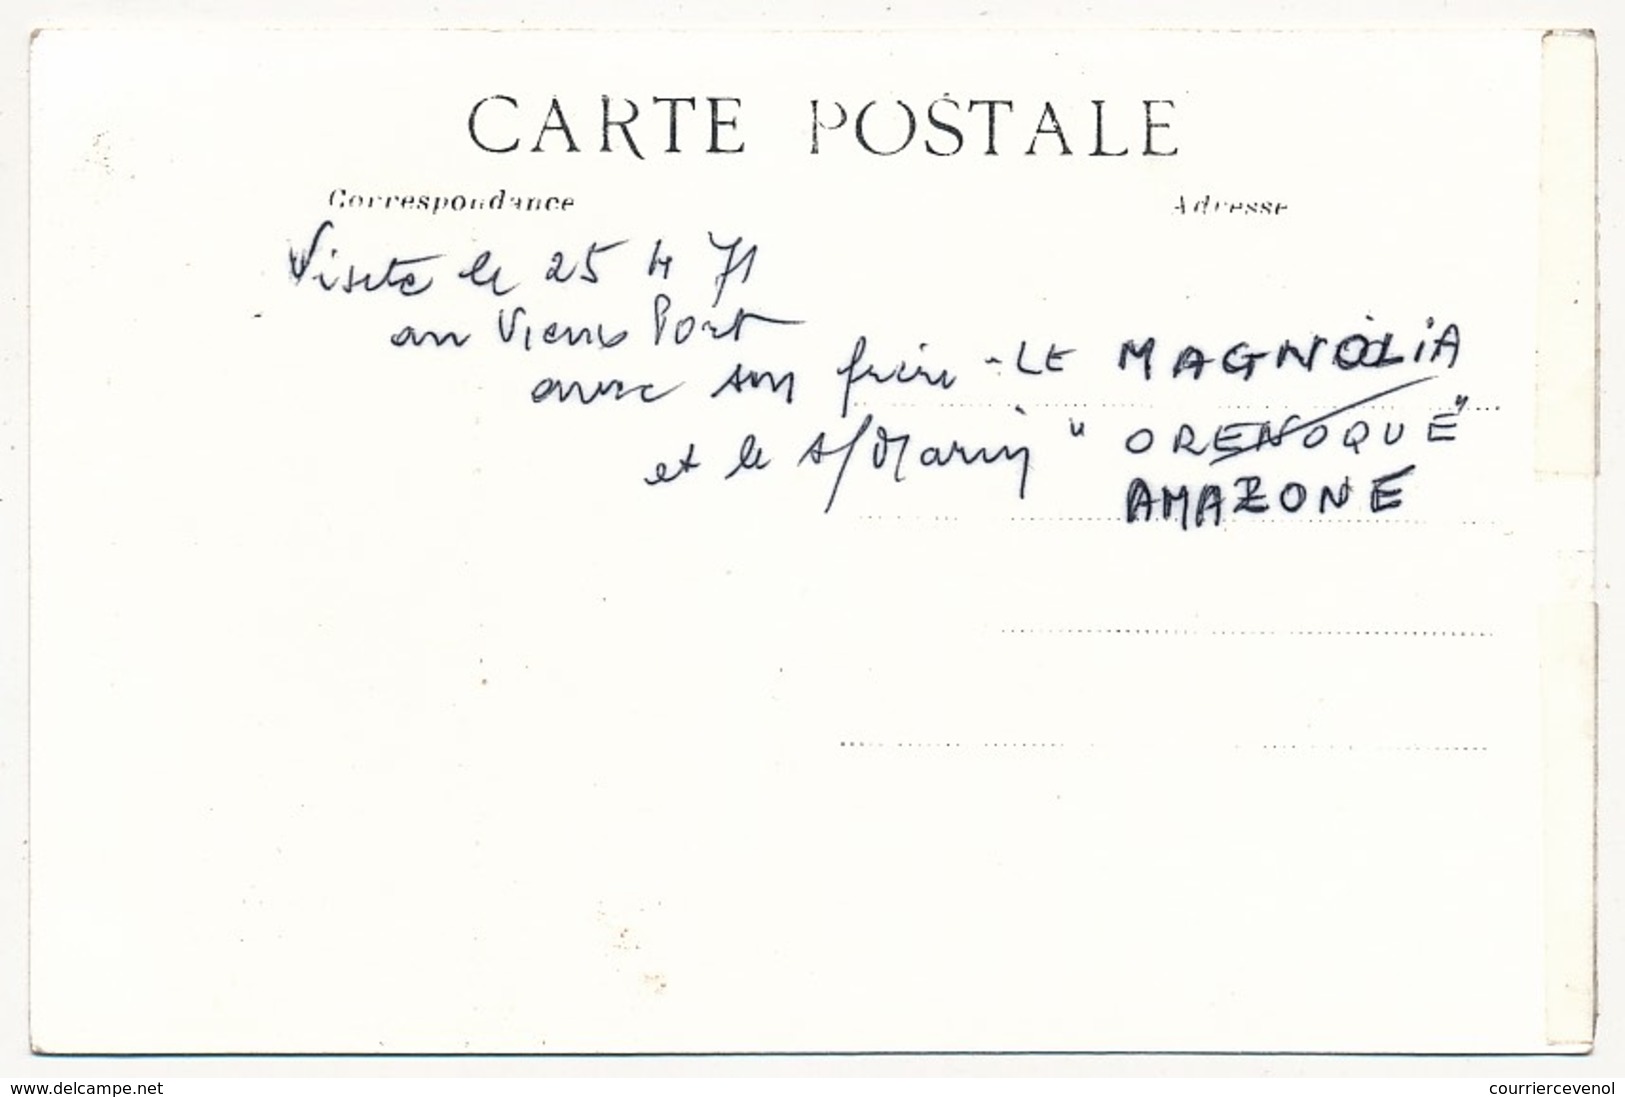 CARTE POSTALE
Correspondance
Adresse
Visite le 25 4 71
au Vieux Port
avec son frère - LE MAGNOLIA
et le s/Marin " ORENOQUE "
AMAZONE
www.delcampe.net
courriercevenol